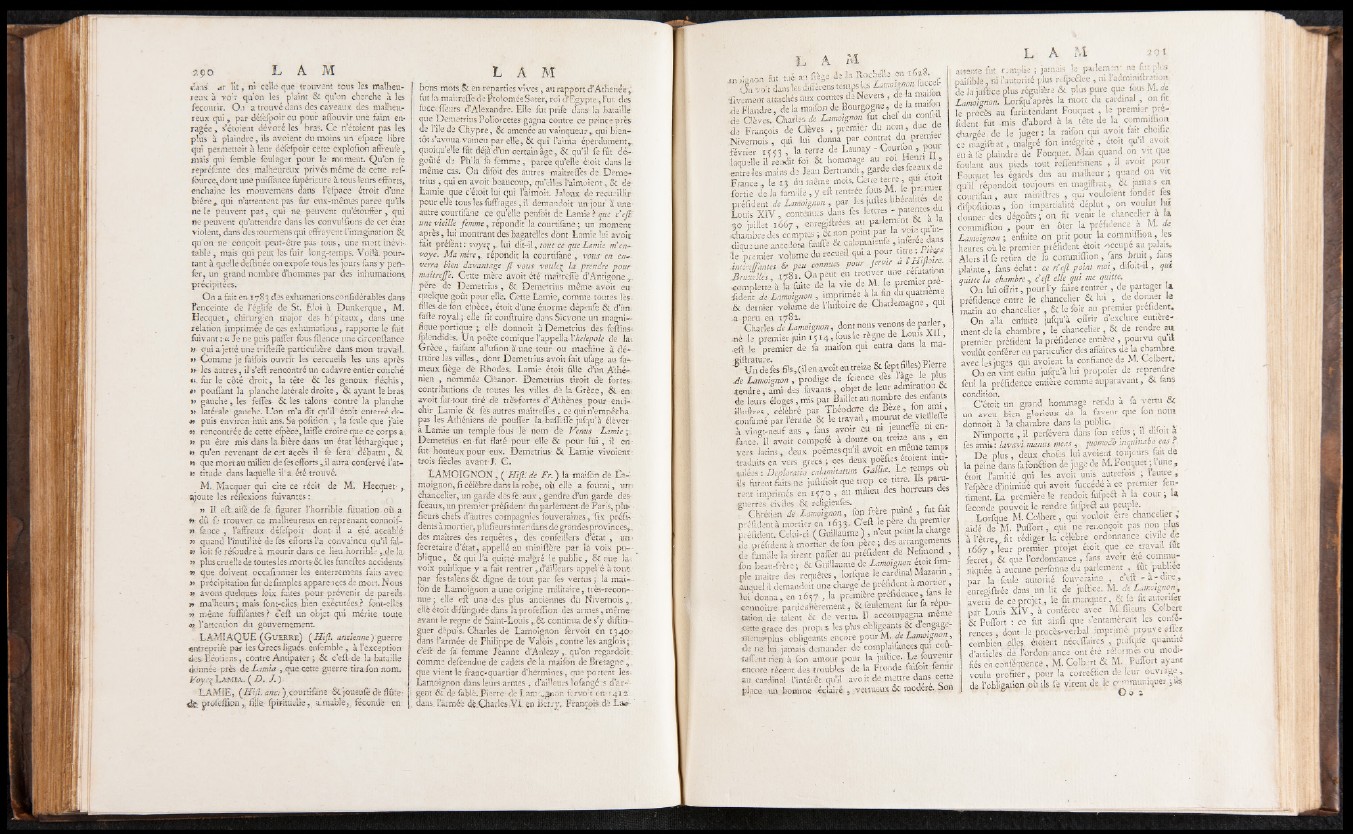 290 L A M
dans un lit, ni celle que trouvent tous les malheu-
reux à voir qu'on les plaint & qu'on cherche à les
secourir. On a trouvé dans des caveaux des malheu-
reux qui, par désespoir ou pour assouvir une faim en-
ragée, s'étoient dévoré les bras. Ce n'étoient pas les
plus à plaindre, ils avoient du moins un espace libre
qui permettoit à leur désespoir cette explosion affreuse,
mais qui semble soulager pour le moment. Qu'on se
représente des malheureux privés même de cette res-
source, dont une puissance supérieure à tous leurs efforts,
enchaîne les mouvemens dans l'espace étroit d'une
bière, qui n'attentent pas sur eux-mêmes parce qu'ils
ne le peuvent pas, qui ne peuvent qu'étouffer, qui
ne peuvent qu'attendre dans les convulsions de cet état
violent, dans des tourmens qui effrayent l'imagination &
qu'on ne conçoit peut-être pas tous, une mort inévi-
table, mais qui peut les fuir long-temps. Voilà pour-
tant à quelle destinée on expose tous les jours sans y pen-
ser, un grand nombre d'hommes par des inhumations
précipitées.
On a fait en 1783 des exhumations considérables dans
l'enceinte de l'église de St. Eloi à Dunkerque, M.
Hecquet, chirurgien major des hôpitaux, dans une
relation imprimée de ces exhumations, rapporte le fait
suivant : « Je ne puis passer sous silence une circonstance
» qui a jetté une tristesse particulière dans mon travail.
» Comme je faisois ouvrir les cercueils les uns après
» les autres, il s'est rencontré un cadavre entier couché
» sur le côté droit, la tête & les genoux fléchis,
» poussant la planche latérale droite, & ayant le bras
» gauche, les fesses & les talons contre la planche
» latérale gauche. L'on m'a dit qu'il étoit enterré de-
» puis environ huit ans. Sa position, la seule que j'aie
» rencontrée de cette espèce, laisse croire que ce corps a
» pu être mis dans la bière dans un état léthargique ;
» qu'en revenant de cet accès il se sera débattu, &
» que mort au milieu de ses efforts, il aura conservé l'at-
» titude dans laquelle il a été trouvé.
M. Macquer qui cite ce récit de M. Hecquet,
ajoute les réflexions suivantes :
» Il est aisé de se figurer l'horrible situation où a
» dû se trouver ce malheureux en reprenant connois-
» sance, l'affreux désespoir dont il a été accablé
» quand l'inutilité de ses efforts l'a convaincu qu'il fal-
» loit se résoudre à mourir dans ce lieu horrible, de la
» plus cruelle de toutes les morts & les funestes accidents
» que doivent occasionner les enterremens faits avec
» précipitation sur de simples apparences de mort. Nous
» avons quelques loix faites pour prévenir de pareils
» malheurs ; mais sont-elles bien exécutées ? sont-elles
» même suffisantes ? c'est un objet qui mérite toute
» l'attention du gouvernement.
LAMIAQUE (GUERRE) (Hist. ancienne) guerre
entreprise par les Grecs ligués ensemble, à l'exception
des Béotiens, contre Antipater ; & c'est de la bataille
donnée près de Lamia, que cette guerre tira son nom.
Voyez LAMIA. (D. J.)
LAMIE, (Hist. anc.) courtisane & joueuse de flûte
de profession, fille spirituelle, aimable, féconde en
L A M
bons mots & en reparties vives, au rapport d'Athenée,
fut la maîtresse de Ptolomée Soter, roi d'Egypte, l'un des
successeurs d'Alexandre. Elle fut prise dans la bataille
que Demetrius Poliorcetes gagna contre ce prince près
de l'île de Chypre, & amenée au vainqueur, qui bien-
tôt s'avoua vaincu par elle, & qui l'aima éperdument,
quoiqu'elle fût déjà d'un certain âge, & qu'il se fût dé-
goûté de Phila sa femme, parce qu'elle étoit dans le
même cas. On disoit des autres maîtresses de Deme-
trius, qui en avoit beaucoup, qu'elles l'aimoient, & de
Lamie que c'étoit lui qui l'aimoit. Jaloux de recueillir
pour elle tous les suffrages, il demandoit un jour à une
autre courtisane ce qu'elle pensoit de Lamie ? que c'est
une vieille femme, répondit la courtisane ; un moment
après, lui montrant des bagatelles dont Lamie lui avoit
fait présent : voyez, lui dit-il, tout ce que Lamie m'en-
voye. Ma mère, répondit la courtisane, vous en en-
verra bien davantage si vous voulez la prendre pour
maîtresse. Cette mère avoit été maîtresse d'Antigone,
père de Demetrius, & Demetrius même avoit eu
quelque goût pour elle. Cette Lamie, comme toutes les
filles de son espèce, étoit d'une énorme dépense & d'un
faste royal ; elle fit construire dans Sicyone un magni-
fique portique ; elle donnoit à Demetrius des festins
splendides. Un poëte comique l'appella l'helepole de la
Grèce, faisant allusion à une tour ou machine à dé-
truire les villes, dont Demetrius avoit fait usage au fa-
meux siège de Rhodes. Lamie étoit fille d'un Athé-
nien, nommée Cléanor. Demetrius tiroit de fortes
contributions de toutes les villes de la Grèce, & en
avoit sur-tout tiré de très-fortes d'Athènes pour enri-
chir Lamie & ses autres maîtresses, ce qui n'empêcha
pas les Athéniens de pousser la bassesse jusqu'à élever
à Lamie un temple sous le nom de Venus Lamie ;
Demetrius en fut flaté pour elle & pour lui, il en
fut honteux pour eux. Demetrius & Lamie vivoient
trois siècles avant J. C.
LAMOIGNON, (Hist. de Fr.) la maison de La-
moignon, si célèbre dans la robe, où elle a fourni, un
chancelier, un garde des sceaux, gendre d'un garde des
sceaux, un premier président du parlement de Paris, plu-
sieurs chefs d'autres compagnies souveraines, six prési-
dents à mortier, plusieurs intendans de grandes provinces,
des maîtres des requêtes, des conseillers d'état, un
secretaire d'état, appellé au ministère par la voix pu-
blique, & qui l'a quitté malgré le public, & que la
voix publique y a fait rentrer, d'ailleurs appellé à tout
par ses talens & digne de tout par ses vertus ; la mai-
son de Lamoignon a une origine militaire, très-recon-
nue ; elle est une des plus anciennes du Nivernois,
elle étoit distinguée dans la profession des armes, même
avant le regne de Saint-Louis, & continua de s'y distin-
guer depuis. Charles de Lamoignon servoit en 1340
dans l'armée de Philippe de Valois, contre les anglois ;
c'est de sa femme Jeanne d'Anlezy, qu'on regardoit
comme descendue de cadets de la maison de Bretagne,
que vient le franc-quartier d'hermines, que portent les
Lamoignon dans leurs armes, d'ailleurs losangées d'ar-
gent & de sable. Pierre de Lamoignon servoit en 1412
dans l'armée de Charles VI en Berry. François de La-
L A M
moignon fut tué au siège de la Rochelle en 1628.
On voit dans les différens temps les Lamoignon succes-
sivement attachés aux comtes de Nevers, de la maison
de Flandre, de la maison de Bourgogne, de la maison
de Clèves. Charles de Lamoignon fut chef du conseil
de François de Clèves, premier du nom, duc de
Nivernois, qui lui donna par contrat du premier
février 1553, la terre de Launay - Courson, pour
laquelle il rendit foi & hommage au roi Henri II,
entre les mains de Jean Bertrandi, garde des sceaux de
France, le 13 du même mois. Cette terre, qui étoit
sortie de la famille, y est rentrée sous M. le premier
président de Lamoignon, par les justes libéralités de
Louis XIV, contenues dans ses lettres - patentes du
30 juillet 1667, enregistrées au parlement & à la
chambre des comptes ; & non point par la voie qu'in-
dique une anecdote fausse & calomnieuse, insérée dans
le premier volume du recueil qui a pour titre : Pièces
intéressantes & peu connues pour servir à l'Histoire.
Bruxelles, 1781. On peut en trouver une réfutation
complette à la suite de la vie de M. le premier pré-
sident de Lamoignon, imprimée à la fin du quatrième
& dernier volume de l'histoire de Charlemagne, qui
a paru en 1782.
Charles de Lamoignon, dont nous venons de parler,
né le premier juin 1514, sous le règne de Louis XII,
est le premier de sa maison qui entra dans la ma-
gistrature.
Un de ses fils, (il en avoit eu treize & sept filles) Pierre
de Lamoignon, prodige de science dès l'âge le plus
tendre, ami des savans, objet de leur admiration &
de leurs éloges, mis par Baillet au nombre des enfants
illustres, célébré par Théodore de Bèze, son ami,
consumé par l'étude & le travail, mourut de vieillesse
à vingt-neuf ans, sans avoir eu ni jeunesse ni en-
fance. Il avoit composé à douze ou treize ans, en
vers latins, deux poëmes qu'il avoit en même temps
traduits en vers grecs ; ces deux poësies étoient inti-
tulées : Deploratio calamitatum Galliæ. Le temps où
ils furent faits ne justifioit que trop ce titre. Ils paru-
rent imprimés en 1570, au milieu des horreurs des
guerres civiles & religieuses.
Chrétien de Lamoignon, son frère puîné, fut fait
président à mortier en 1633. C'est le père du premier
président. Celui-ci (Guillaume), n'eut point la charge
de président à mortier de son père ; des arrangements
de famille la firent passer au président de Nesmond,
son beau-frère ; & Guillaume de Lamoignon étoit sim-
ple maître des requêtes, lorsque le cardinal Mazarin,
auquel il demandoit une charge de président à mortier,
lui donna, en 1657, la première présidence, sans le
connoître particulièrement, & seulement sur sa répu-
tation de talent & de vertu. Il accompagna même
cette grace des propos les plus obligeants & d'engage-
mens plus obligeants encore pour M. de Lamoignon,
de ne lui jamais demander de complaisances qui coû-
tassent rien à son amour pour la justice. Le souvenir
encore récent des troubles de la Fronde faisoit sentir
au cardinal l'intérêt qu'il avoit de mettre dans cette
place un homme éclairé, vertueux & modéré. Son
L A M 291
attente fut remplie ; jamais le parlement ne fut plus
paisible, ni l'autorité plus respectée, ni l'administration
de la justice plus régulière & plus pure que sous M. de
Lamoignon. Lorsqu'après la mort du cardinal, on fit
le procès au surintendant Fouquet, le premier pré-
sident fut mis d'abord à la tête de la commission
chargée de le juger : la raison qui avoit fait choisir
ce magistrat, malgré son intégrité, étoit qu'il avoit
eu à se plaindre de Fouquet. Mais quand on vit que
foulant aux pieds tout ressentiment, il avoit pour
Fouquet les égards dûs au malheur ; quand on vit
qu'il répondoit toujours en magistrat, & jamais en
courtisan, aux ministres, qui vouloient sonder ses
dispositions, son impartialité déplut, on voulut lui
donner des dégoûts ; on fit venir le chancelier à la
commission, pour en ôter la présidence à M. de
Lamoignon ; ensuite on prit pour la commission, les
heures où le premier président étoit occupé au palais.
Alors il se retira de la commission, sans bruit, sans
plainte, sans éclat : ce n'est point moi, disoit-il, qui
quitte la chambre, c'est elle qui me quitte.
On lui offrit, pour l'y faire rentrer, de partager la
présidence entre le chancelier & lui, de donner le
matin au chancelier, & le soir au premier président.
On alla ensuite jusqu'à offrir d'exclure entière-
ment de la chambre, le chancelier, & de rendre au
premier président la présidence entière, pourvu qu'il
voulût conférer en particulier des affaires de la chambre
avec les juges qui avoient la confiance de M. Colbert.
On en vint enfin jusqu'à lui proposer de reprendre
seul la présidence entière comme auparavant, & sans
condition.
C'étoit un grand hommage rendu à sa vertu &
un aveu bien glorieux de la faveur que son nom
donnoit à la chambre dans le public.
N'importe, il persévéra dans son refus ; il disoit à
ses amis : lavavi manus meas, quomodo inquinabo eas ?
De plus, deux choses lui avoient toujours fait de
la peine dans sa fonction de juge de M. Fouquet ; l'une,
étoit l'amitié qui les avoit unis autrefois ; l'autre,
l'espèce d'inimitié qui avoit succédé à ce premier sen-
timent. La première le rendoit suspect à la cour ; la
seconde pouvoit le rendre suspect au peuple.
Lorsque M. Colbert, qui vouloit être chancelier,
aidé de M. Pussort, qui ne renonçoit pas non plus
à l'être, fit rédiger la célèbre ordonnance civile de
1667, leur premier projet étoit que ce travail fût
secret, & que l'ordonnance, sans avoir été commu-
niquée à aucune personne du parlement, fût publiée
par la seule autorité souveraine, c'est - à - dire,
enregistrée dans un lit de justice. M. de Lamoignon,
averti de ce projet, le fit manquer, & se fit autoriser
par Louis XIV, à conférer avec Messieurs Colbert
& Pussort : ce fut ainsi que s'entamèrent les confé-
rences, dont le procès-verbal imprimé prouve assez
combien elles étoient nécessaires, puisque quantité
d'articles de l'ordonnance ont été réformés ou modi-
fiés en conséquence, M. Colbert & M. Pussort ayant
voulu profiter, pour la correction de leur ouvrage,
de l'obligation où ils se virent de le communiquer ; les
O o 2